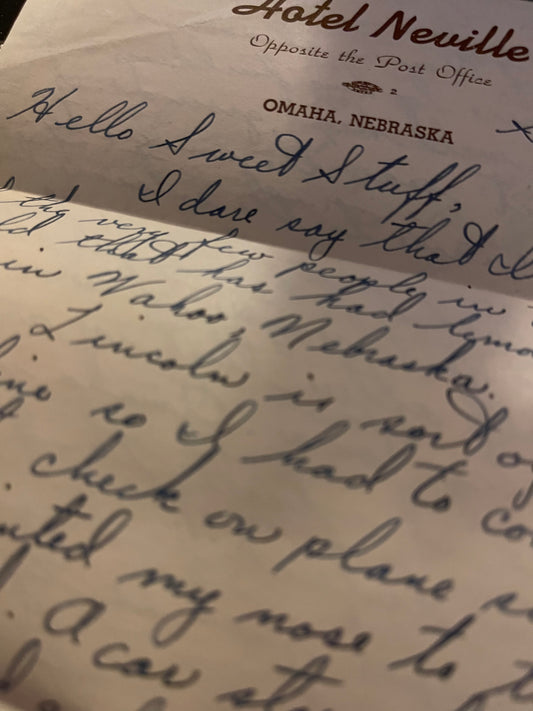 Hotel Neville
Opposite the Post Office
2
OMAHA, NEBRASKA
Hello Sweet Stuff,
I dare say that I
the very few people in
that has had
in Wahoo, Nebraska.
Lincoln is sort
so I had to
check on plane
my nose to
A car